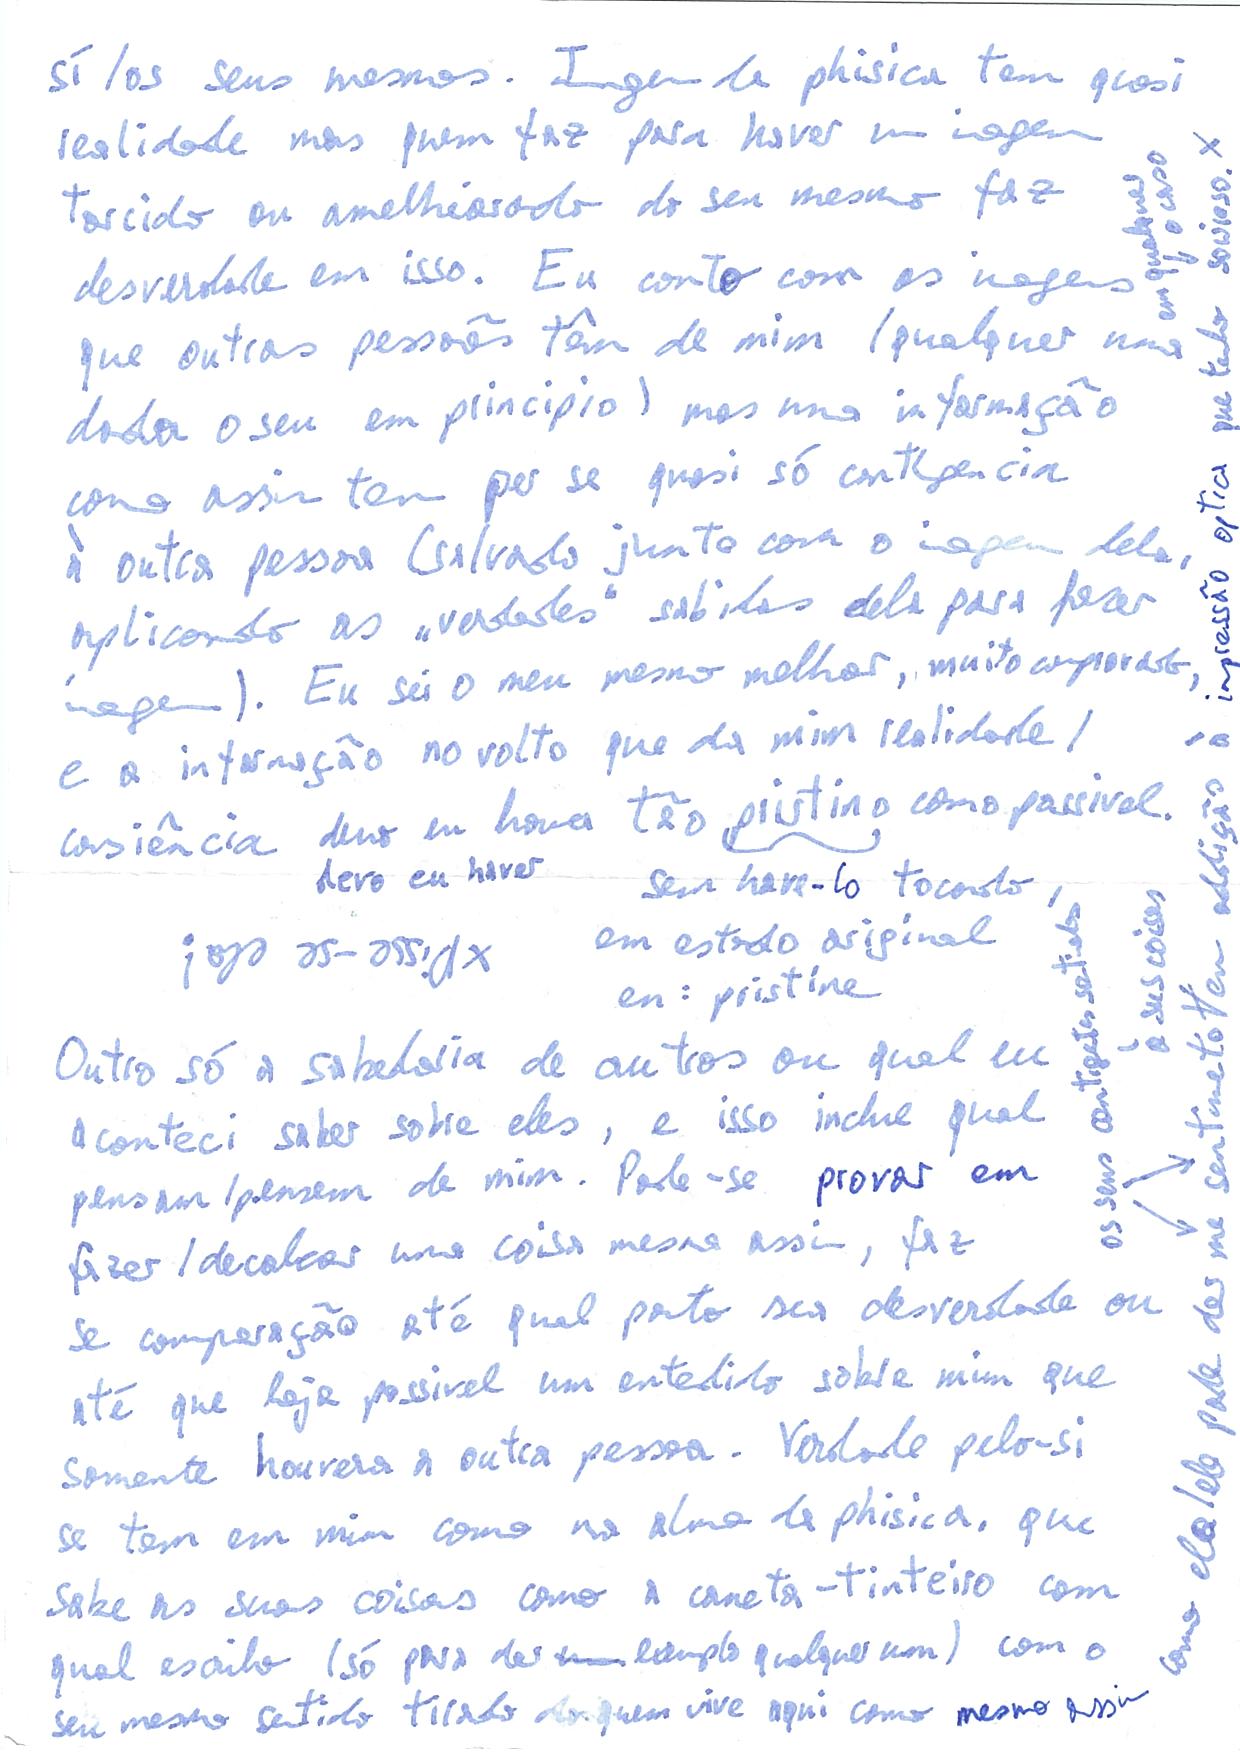 sí /os seus mesmos. Imagem da phisica tem quasi
realidade mas quem faz para haver um imagem
torcido ou amelhiorado do seu mesmo faz
desverdade em isso. Eu conto com as imagens
que outras pessoãs têm de mim (qualquer uma
dada o seu em principio) mas uma informação
como assim tem per se quasi só contigencia
à outra pessoa (salvado junto com o imagem dela,
aplicando as „verdades“ sabidas dela para fazer
imagem). Eu sei o meu mesmo melhor, muito comprovado,
e a informação no volto que da mim realidade /
consiência devo eu haver tão pristino como possivel.
devo eu haver
sem have-lo tocando,
em estado original
en: pristine
x phisse-se eloa!
Outro só a sabedoria de outros ou qual eu
aconteci saber sobre eles, e isso inclue qual
pensam/pensem de mim. Pode-se provar em
fazer/decalcar uma coisa mesma assim, faz
se comparação até qual ponto sea desverdade ou
até que haja possivel um entedido sobre mim que
somente houvera a outra pessoa. Verdade pelo-si
se tem em mim como na alma da phisica, que
sabe as suas coisas como a caneta-tinteiro com
qual escribo (só para dar um exemplo qualquer um) com o
seu mesmo sentido tirado do quem vive aqui como mesmo assim
como ela/ele pode dar me sentimeto Vem adição à impressão optica que tenho sorioso. x
em qualquer
o caso
os seus contiguetes sentidos
à sus coisas